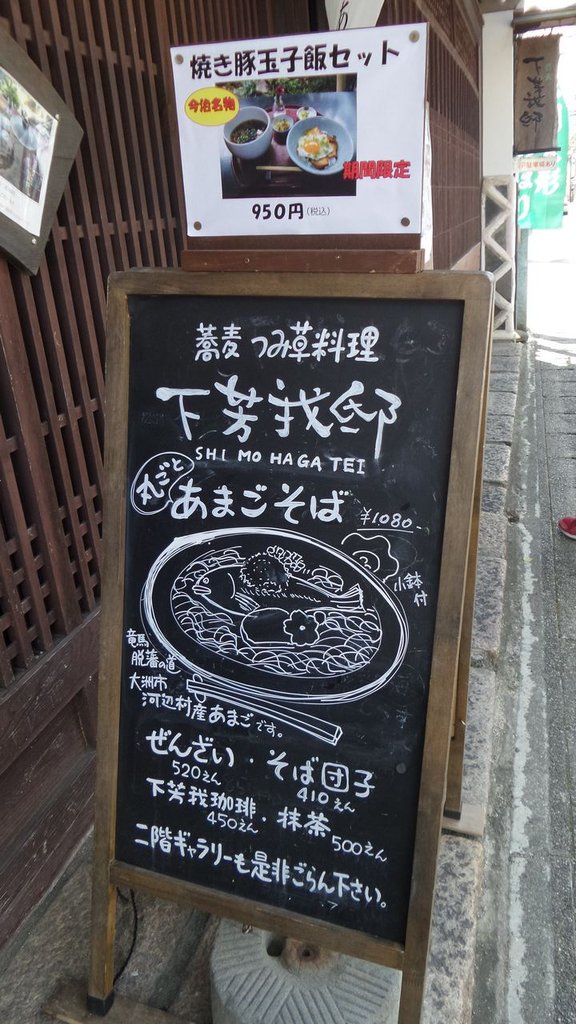 焼き豚玉子飯セット
今治名物
期間限定
950円(税込)
下芳我邸
蕎麦 つみ草料理
下芳我邸
SHIMOHAGATEI
丸ごと
あまごそば ¥1080-
小鉢
付
竜馬
脱藩の道
大洲市
河辺村産あまごです。
ぜんざい・そば団子
520えん 410えん
下芳我珈琲・抹茶
450えん 500えん
二階ギャラリーも是非ごらん下さい。